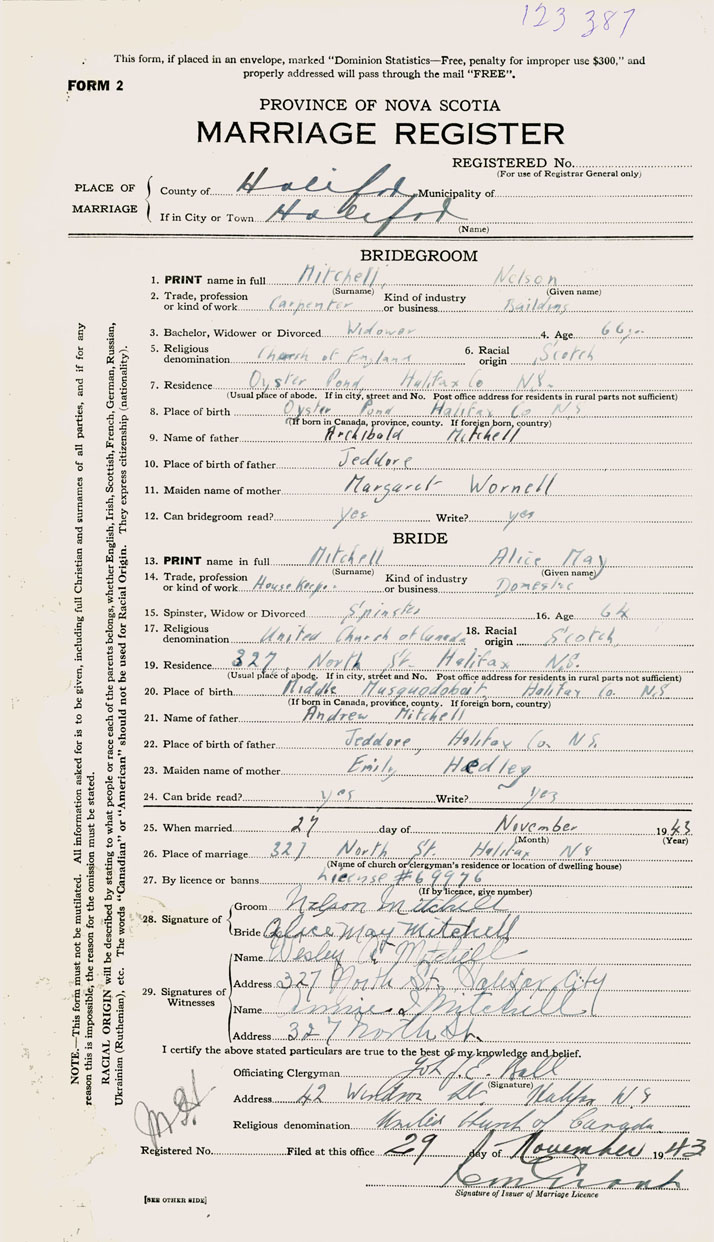 123 387
This form, if placed in an envelope, marked "Dominion Statistics—Free, penalty for improper use $300," and
properly addressed will pass through the mail "FREE".
FORM 2
PROVINCE OF NOVA SCOTIA
MARRIAGE REGISTER
REGISTERED No.
(For use of Registrar General only)
PLACE OF MARRIAGE
County of Halifax Municipality of
If in City or Town Halifax
(Name)
BRIDEGROOM
1. PRINT name in full Mitchell, Nelson
(Surname) (Given name)
2. Trade, profession or kind of work Carpenter Kind of industry or business Building
3. Bachelor, Widower or Divorced Widower 4. Age 66 yrs
5. Religious denomination Church of England 6. Racial origin Scotch
7. Residence Oyster Pond, Halifax Co N.S.
(Usual place of abode. If in city, street and No. Post office address for residents in rural parts not sufficient)
8. Place of birth Oyster Pond Halifax Co NS
(If born in Canada, province, county. If foreign born, country)
9. Name of father Archibald Mitchell
10. Place of birth of father Jeddore
11. Maiden name of mother Margaret Wornell
12. Can bridegroom read? yes Write? yes
BRIDE
13. PRINT name in full Mitchell Alice May
(Surname) (Given name)
14. Trade, profession or kind of work House Keeper Kind of industry or business Domestic
15. Spinster, Widow or Divorced Spinster 16. Age 64
17. Religious denomination United Church of Canada 18. Racial origin Scotch
19. Residence 327 North St. Halifax N.S.
(Usual place of abode. If in city, street and No. Post office address for residents in rural parts not sufficient)
20. Place of birth Middle Musquodoboit, Halifax Co. N.S
(If born in Canada, province, county. If foreign born, country)
21. Name of father Andrew Mitchell
22. Place of birth of father Jeddore, Halifax Co. N.S.
23. Maiden name of mother Emily Hedley
24. Can bride read? yes Write? yes
25. When married 27 day of November 1943
(Month) (Year)
26. Place of marriage 327 North St. Halifax NS
(Name of church or clergyman's residence or location of dwelling house)
27. By licence or banns License #69976
(If by licence, give number)
28. Signature of
Groom Nelson Mitchell
Bride Alice May Mitchell
29. Signatures of Witnesses
Name Wesley Mitchell
Address 327 North St. Halifax City
Name Mitchell
Address 327 North St.
I certify the above stated particulars are true to the best of my knowledge and belief.
Officiating Clergyman J.E. Ball
(Signature)
Address 42 Windsor St. Halifax N.S
Religious denomination United Church of Canada
Registered No. Filed at this office 29 day of November 1943
Grant
Signature of Issuer of Marriage Licence
[SEE OTHER SIDE]
NOTE.—This form must not be mutilated. All information asked for is to be given, including full Christian and surnames of all parties, and if for any
reason this is impossible, the reason for the omission must be stated.
RACIAL ORIGIN will be described by stating to what people or race each of the parents belongs, whether English, Irish, Scottish, French, German, Russian,
Ukrainian (Ruthenian), etc. The words "Canadian" or "American" should not be used for Racial Origin. They express citizenship (nationality).